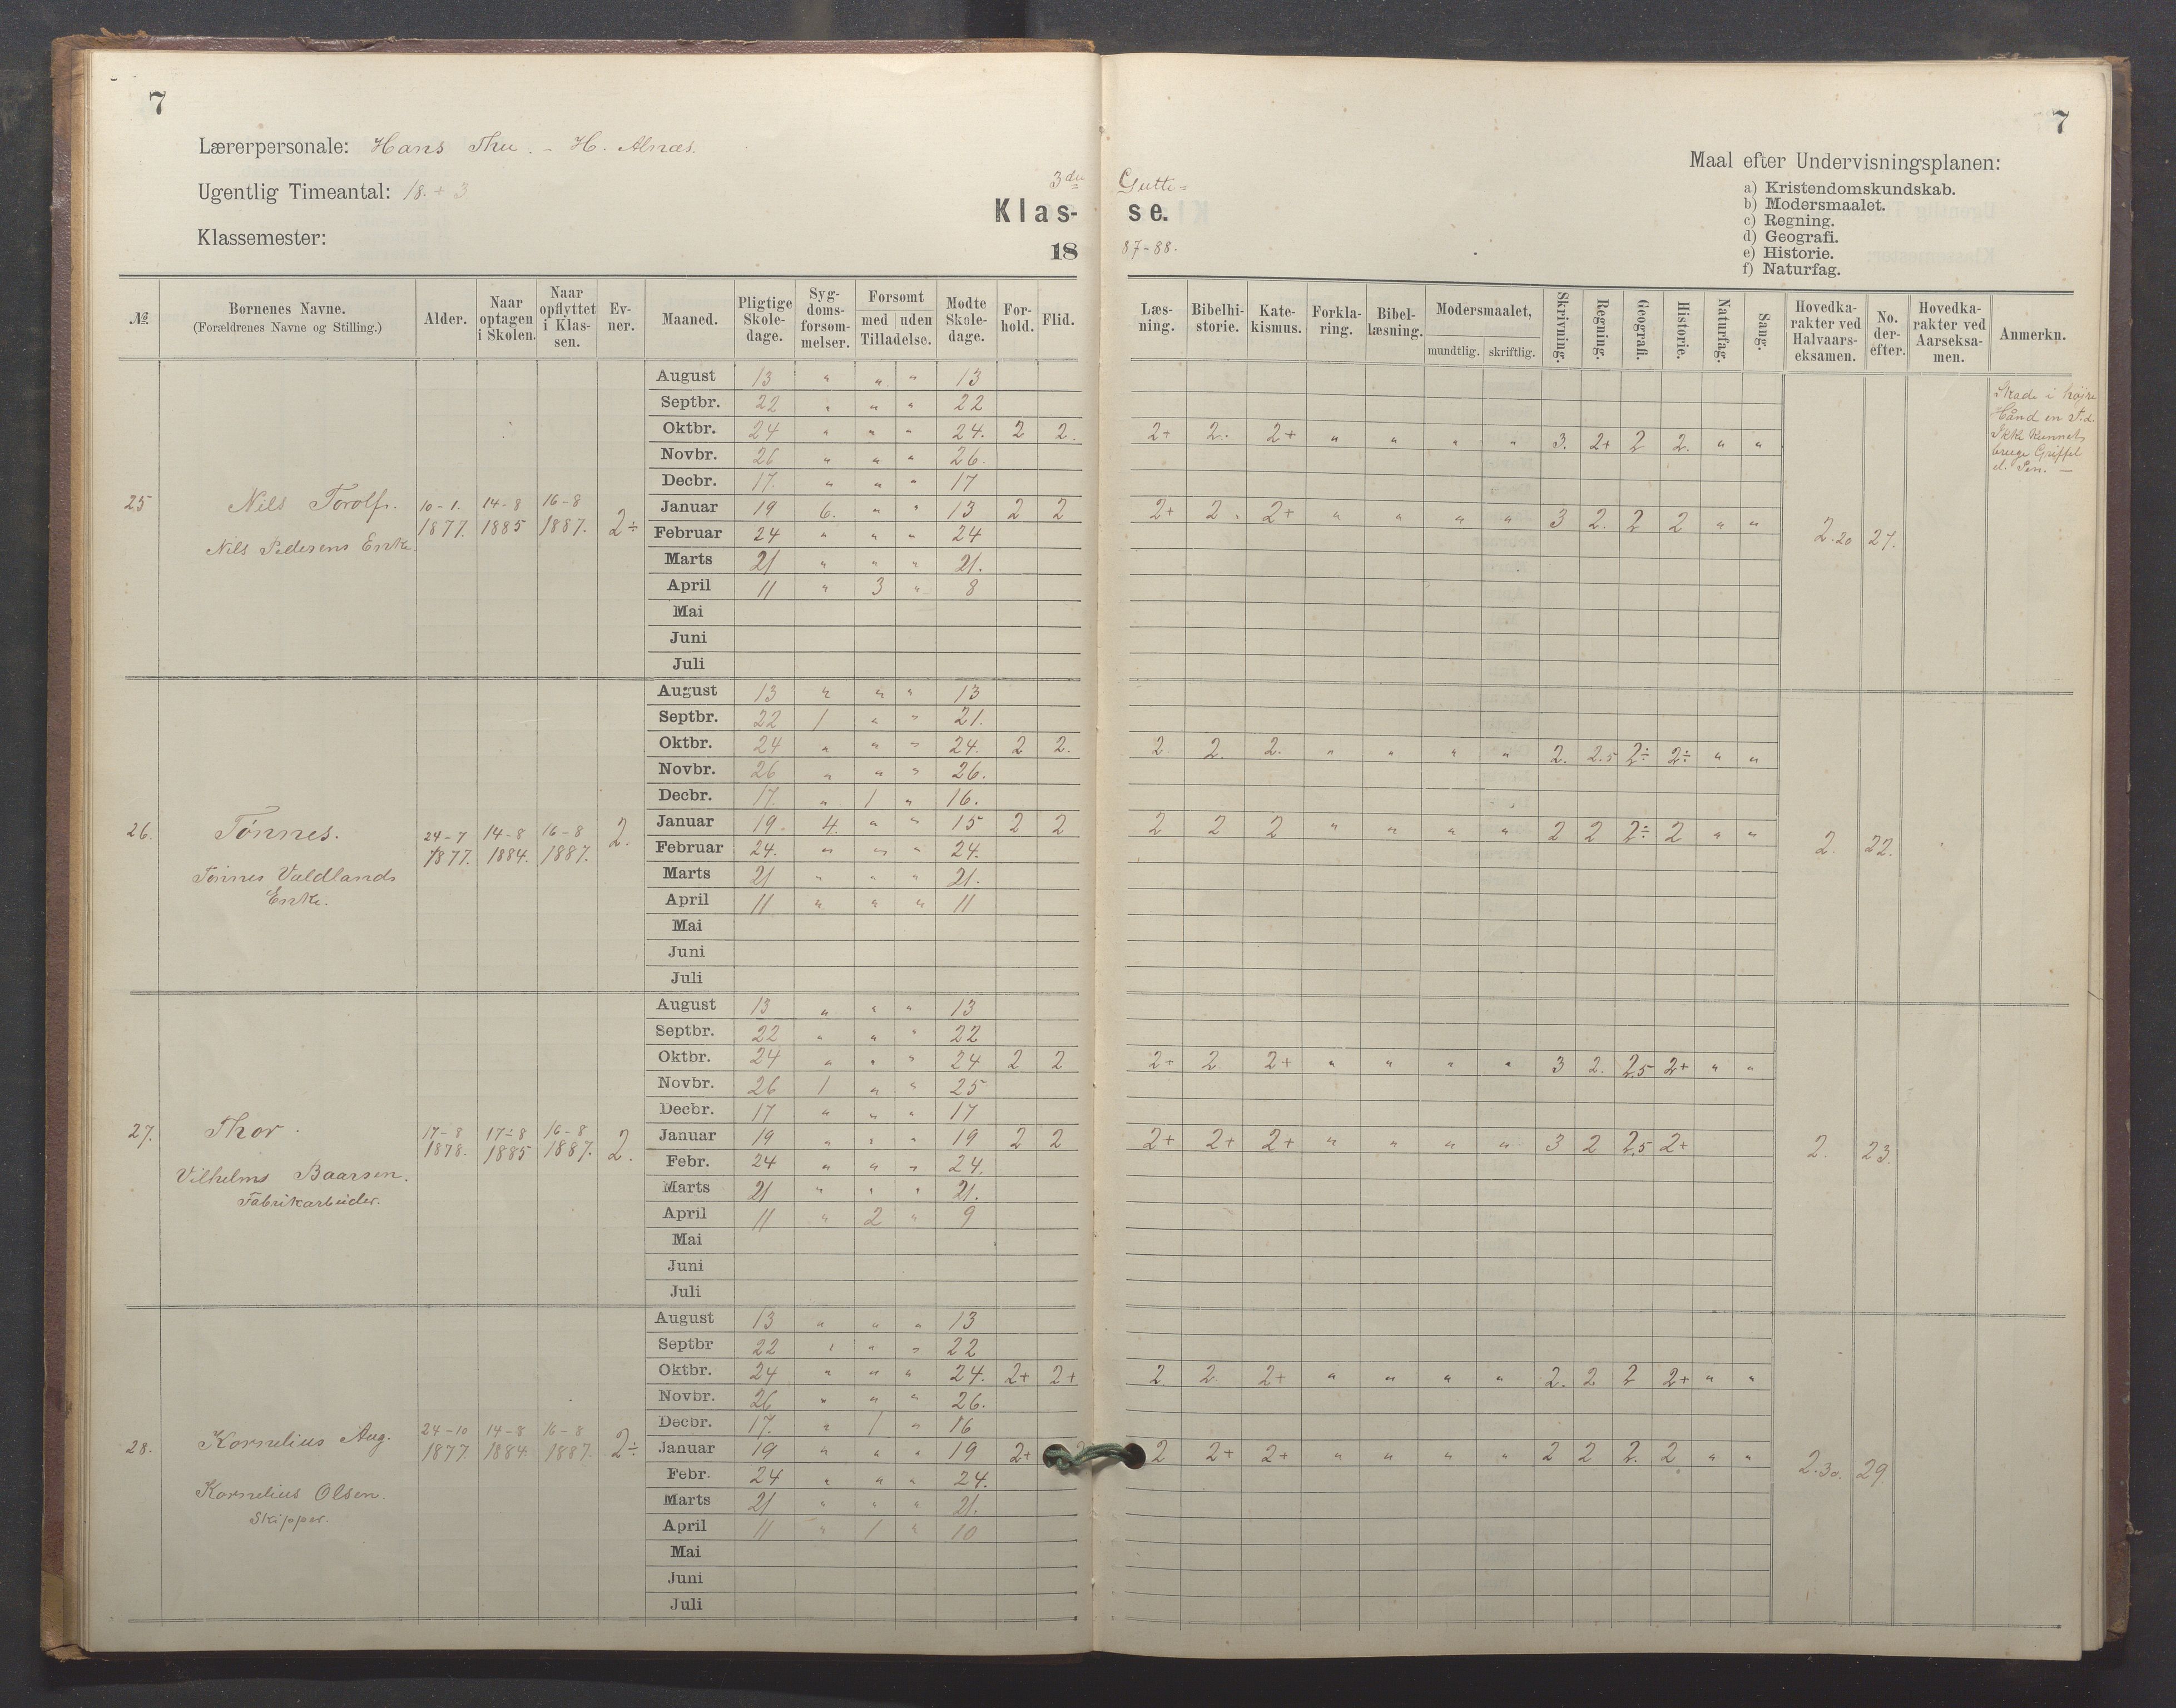 7
7
Lærerpersonale: Hans Thu. - H. Alnæs.
Ugentlig Timeantal: 18. + 3
Klassemester:
3die Gutte=
Klas- se.
18 87-88.
Maal efter Undervisningsplanen:
a) Kristendomskundskab.
b) Modersmaalet.
c) Regning.
d) Geografi.
e) Historie.
f) Naturfag.
№ | Børnenes Navne. (Forældrenes Navne og Stilling.) | Alder. | Naar optagen i Skolen. | Naar opflyttet i Klassen. | Evner. | Maaned. | Pligtige Skoledage. | Sygdomsforsømmelser. | Forsømt med | uden Tilladelse. | Mødte Skoledage. | Forhold. | Flid. | Læsning. | Bibelhistorie. | Katekismus. | Forklaring. | Bibellæsning. | Modersmaalet, mundtlig. | skriftlig. | Skrivning. | Regning. | Geografi. | Historie. | Naturfag. | Sang. | Hovedkarakter ved Halvaarseksamen. | No. derefter. | Hovedkarakter ved Aarseksamen. | Anmerkn.
25 Nils Torolf. 10-1. 1877. 14-8 1885 16-8 1887. 2÷
Nils Pedersens Enke.
August 13 " " " 13
Septbr. 22 " " " 22
Oktbr. 24 " " " 24. 2 2. 2+ 2. 2+ " " " " 3. 2+ 2 2. " "
Novbr. 26 " " " 26.
Decbr. 17. " " " 17
Januar 19 6. " " 13 2 2 2+ 2. 2+ " " " " 3 2. 2 2 " "
Februar 24 " " " 24
Marts 21 " " " 21.
April 11 " 3 " 8
Mai
Juni
Juli
2.20 27.
Skade i højre
Hånd en Tid.
Ikke kunnet
bruge Griffel
el. Pen. —
26. Tønnes. 24-7 1877. 14-8 1884. 16-8 1887. 2.
Tønnes Vældlands
Enke.
August 13 " " " 13
Septbr. 22 1 " " 21.
Oktbr. 24 " " " 24. 2 2. 2. 2. 2. " " " " 2. 2.5 2÷ 2÷ " "
Novbr. 26 " " " 26.
Decbr. 17. " 1 " 16.
Januar 19. 4. " " 15 2 2 2 2 2 " " " " 2 2 2÷ 2 " "
Februar 24. " " " 24.
Marts 21 " " " 21.
April 11 " " " 11
Mai
Juni
Juli
2. 22.
27. Thor. 17-8 1878. 17-8 1885 16-8 1887. 2.
Vilhelms Baarsen.
Fabrikarbeider.
August 13 " " " 13
Septbr. 22 " " " 22
Oktbr. 24 " " " 24 2 2 2+ 2 2+ " " " " 3 2. 2.5 2+ " "
Novbr. 26 1 " " 25
Decbr. 17 " " " 17
Januar 19 " " " 19 2 2 2+ 2+ 2+ " " " " 3 2 2.5 2+
Febr. 24 " " " 24.
Marts 21 " " " 21.
April 11 " 2 " 9
Mai
Juni
Juli
2. 23.
28. Kornelius Aug. 24-10 1877. 14-8 1884 16-8 1887. 2÷
Kornelius Olsen.
Skipper.
August 13 " " " 13
Septbr 22 " " " 22
Oktbr. 24 " " " 24. 2+ 2+ 2 2 2+ " " " " 2. 2 2 2+ " "
Novbr. 26 " " " 26.
Decbr. 17. " 1 " 16
Januar 19 " " " 19 2+ 2 2+ 2+ " " " " 2 2 2. 2 " "
Febr. 24 " " " 24.
Marts 21 " " " 21.
April 11 " 1 " 10
Mai
Juni
Juli
2.30. 29.